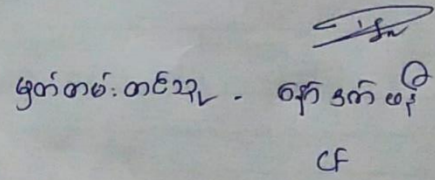 မှတ်တမ်းတင်သူ - နော်ဒတ်ဖန်
CF